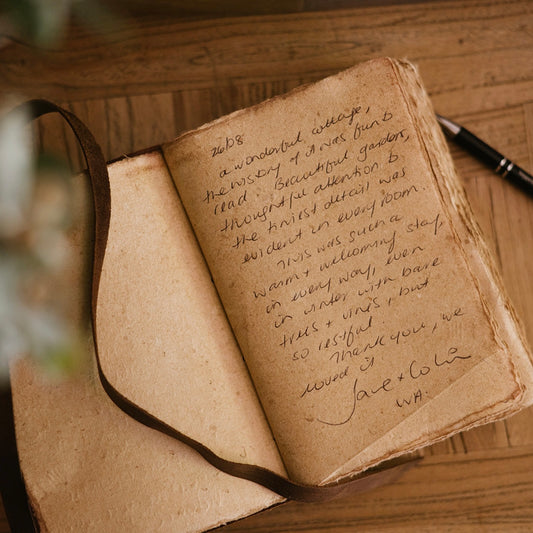 26/08
a wonderful cottage,
the history of it was fun to
read. Beautiful gardens,
thoughtful attention to
the tiniest detail was
evident in every room.
This was such a
warm + welcoming stay,
in every way, even
in winter with bare
trees + vines + but
so restful.
Thank you, we
loved it
Jane + Colin
WA.